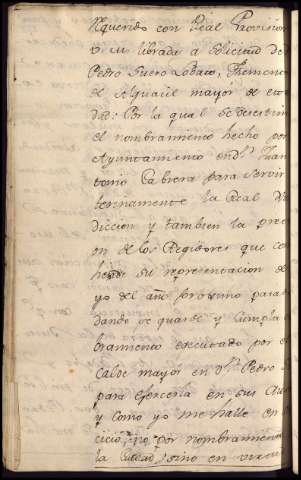 Requerido con Real Provision
a su librada a Solicitud de
Pedro Suero Lobato, Themiente
de Alguacil mayor de esta
dad: Por la qual se
el nombramiento hecho por
Ayuntamiento en dn. Juan
tonio Cabrera para servir
terinamente la Real
diccion y tambien la pre
on de los Regidores que ce
su representacion de
yo del año proximo pasa
dando se guarde y cumpla
bramiento executado por e
Calde mayor en Dn. Pedro
para exercerla en sus Au
y como yo me halle en
cicio, no por nombramiento
la Ciudad, sino en virtud